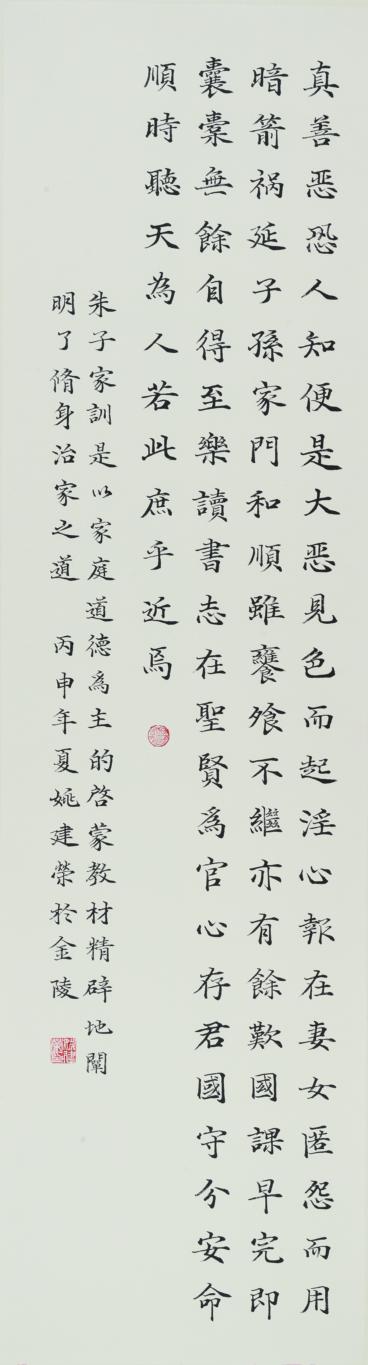 真善恶恐人知便是大恶見色而起淫心報在妻女匿怨而用
暗箭祸延子孫家門和順雖饔飧不繼亦有餘歡國課早完即
囊橐無餘自得至樂讀書志在聖賢為官心存君國守分安命
順時聽天為人若此庶乎近焉
朱子家訓是以家庭道德為主的啓蒙教材精辟地闡
明了脩身治家之道 丙申年夏姚建榮於金陵